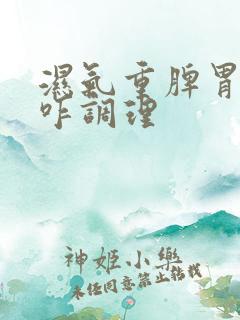 濕氣重脾胃
咋調理
神姬小樂
未经同意禁止转载